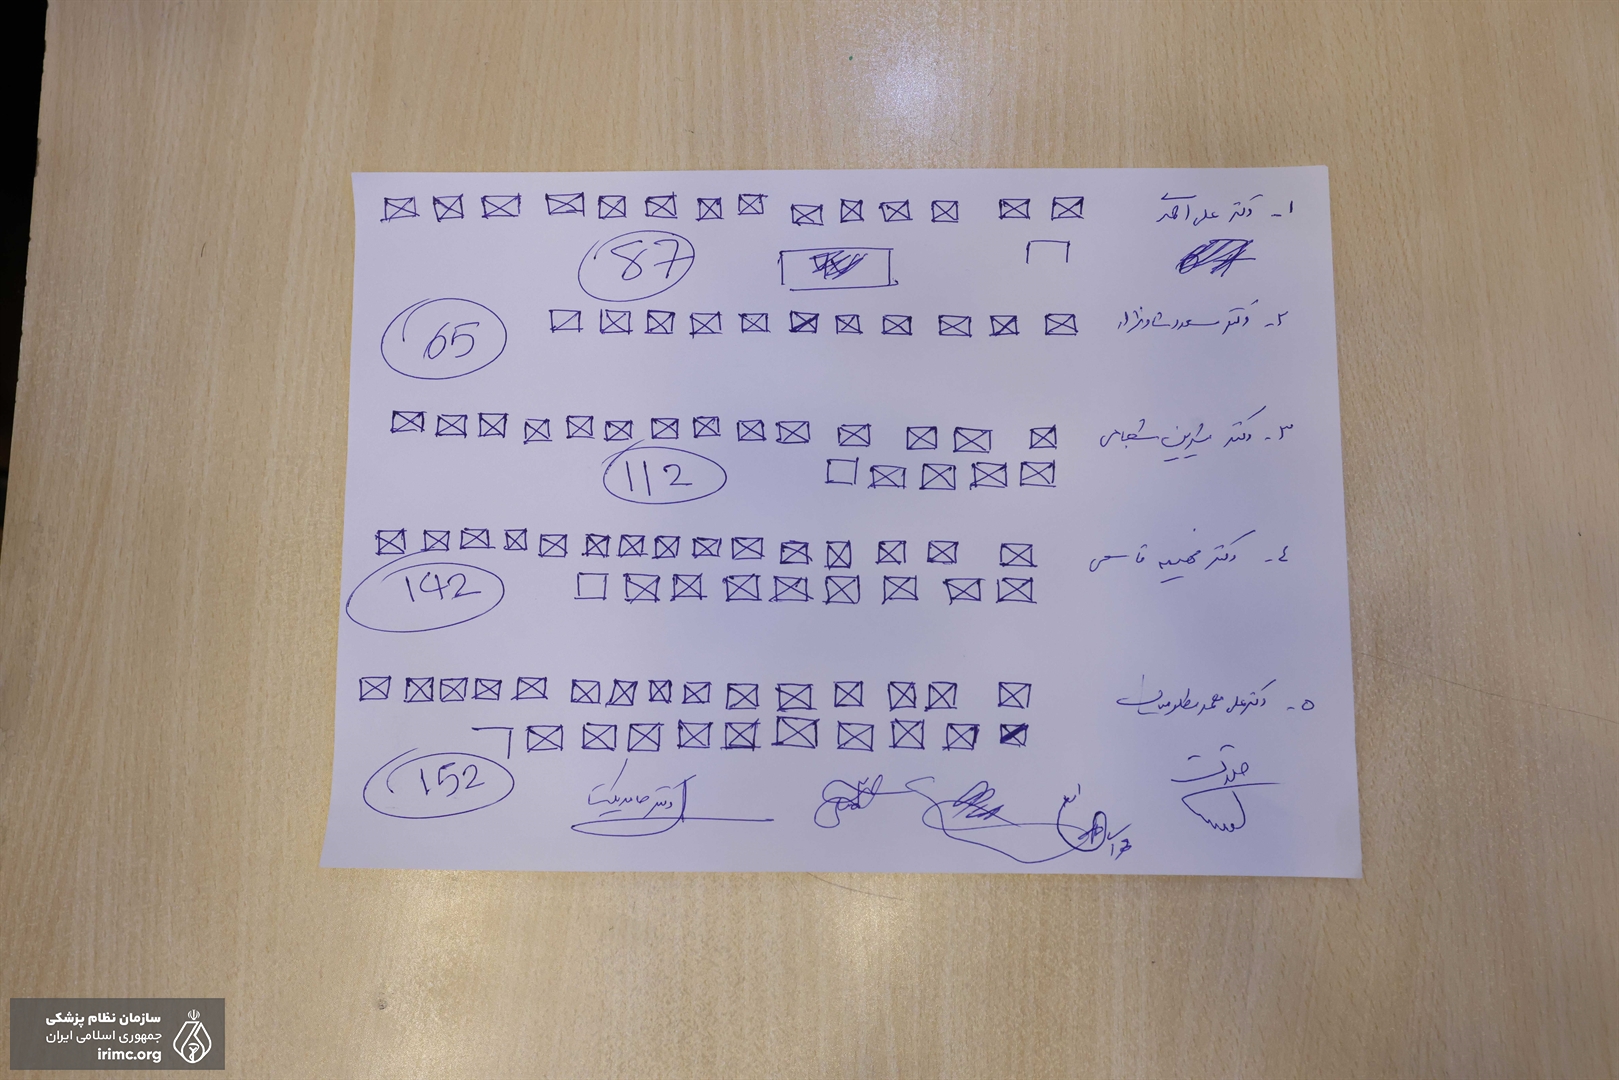 ۱- دکتر علی احمدی
87
۲- دکتر مسعود
65
۳- دکتر شیرین شجاعی
112
۴- دکتر نفیسه قاسمی
142
۵- دکتر علی محمد مظلومی
152
صداقت
دکتر حامد یکتا
سازمان نظام پزشکی
جمهوری اسلامی ایران
irimc.org